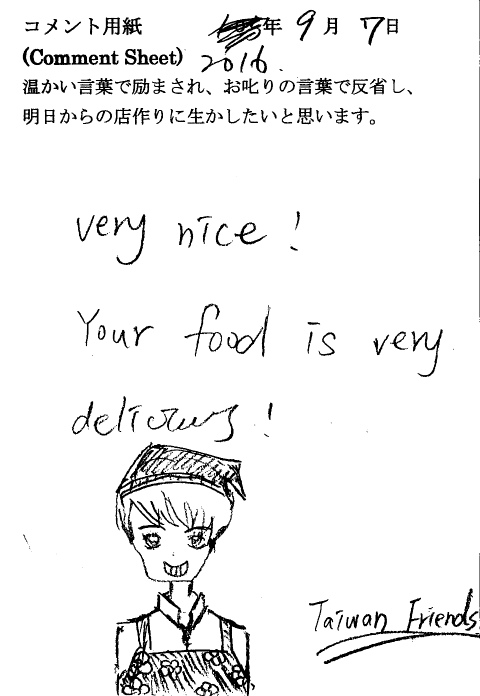 コメント用紙 年 9 月 7 日
(Comment Sheet) 2016.
温かい言葉で励まされ、お叱りの言葉で反省し、
明日からの店作りに生かしたいと思います。
very nice !
Your food is very
delicious !
Taiwan Friends